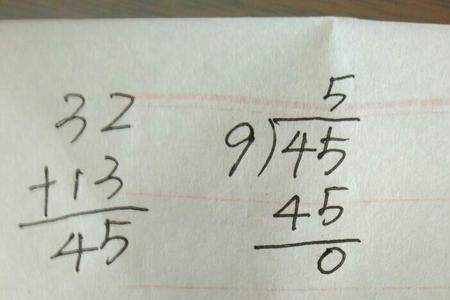 32
+13
45
5
9)45
45
0